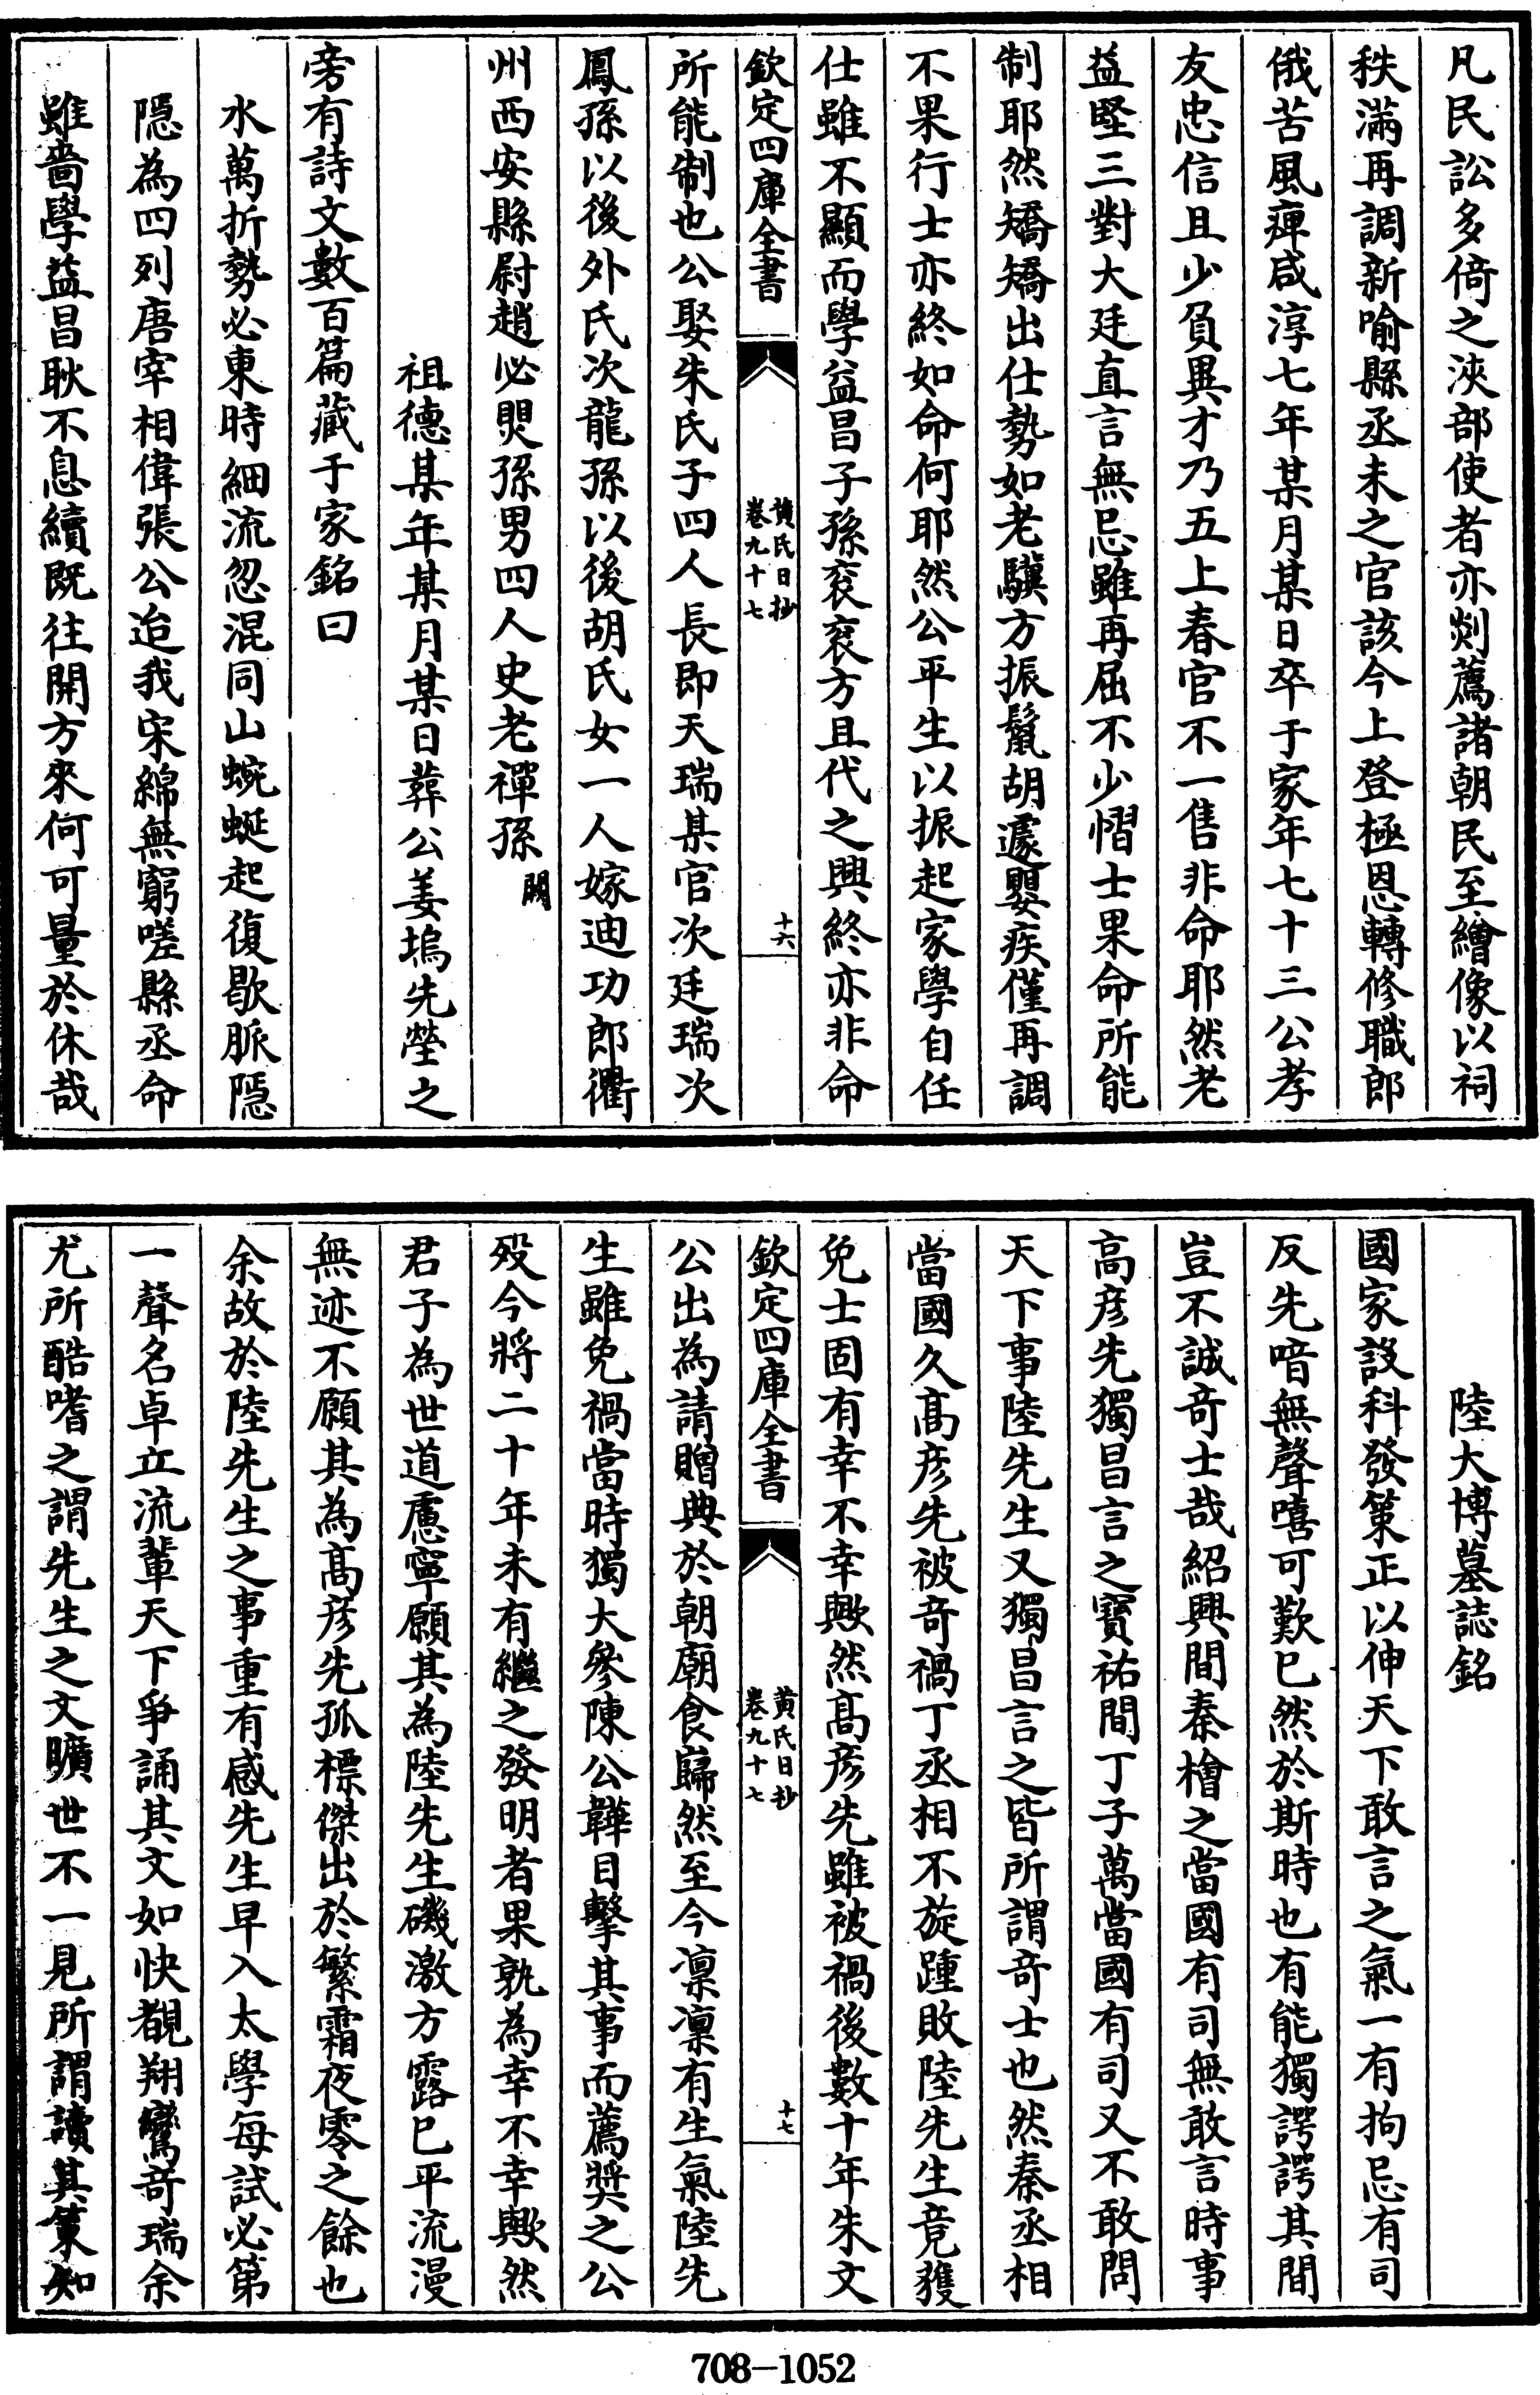 凡民訟多倚之浹部使者亦剡薦諸朝民至繪像以祠
秩滿再調新喻縣丞未之官該今上登極恩轉修職郎
俄苦風痺咸淳七年某月某日卒于家年七十三公孝
友忠信且少負異才乃五上春官不一售非命耶然老
益堅三對大廷直言無忌雖再屈不少慴士果命所能
制耶然矯矯出仕勢如老驥方振鬛胡遽嬰疾僅再調
不果行士亦終如命何耶然公平生以振起家學自任
仕雖不顯而學益昌子孫衮衮方且代之興終亦非命
欽定四庫全書
黄氏日抄
卷九十七
十六
所能制也公娶朱氏子四人長即天瑞某官次廷瑞次
鳳孫以後外氏次龍孫以後胡氏女一人嫁迪功郎衢
州西安縣尉趙必煚孫男四人史老禪孫闕
祖德某年某月某日葬公姜塢先塋之
旁有詩文數百篇藏于家銘曰
水萬折勢必東時細流忽混同山蜿蜒起復歇脈隱
隠為四列唐宰相偉張公迨我宋綿無窮嗟縣丞命
雖嗇學益昌耿不息續既往開方來何可量於休哉
陸大博墓誌銘
國家設科發策正以伸天下敢言之氣一有拘忌有司
反先喑無聲嘻可歎已然於斯時也有能獨諤諤其間
豈不誠奇士哉紹興間秦檜之當國有司無敢言時事
高彦先獨昌言之寳祐間丁子萬當國有司又不敢問
天下事陸先生又獨昌言之皆所謂奇士也然秦丞相
當國久高彦先被奇禍丁丞相不旋踵敗陸先生竟獲
免士固有幸不幸歟然高彦先雖被禍後數十年朱文
欽定四庫全書
黄氏日抄
卷九十七
十七
公出為請贈典於朝廟食歸然至今凛凛有生氣陸先
生雖免禍當時獨大參陳公韡目擊其事而薦奬之公
歿今將二十年未有繼之發明者果孰為幸不幸歟然
君子為世道慮寧願其為陸先生磯激方露已平流漫
無迹不願其為高彦先孤標傑出於繁霜夜零之餘也
余故於陸先生之事重有感先生早入太學每試必第
一聲名卓立流輩天下爭誦其文如快覩翔鸞奇瑞余
尤所酷嗜之謂先生之文曠世不一見所謂讀其策知
708-1052